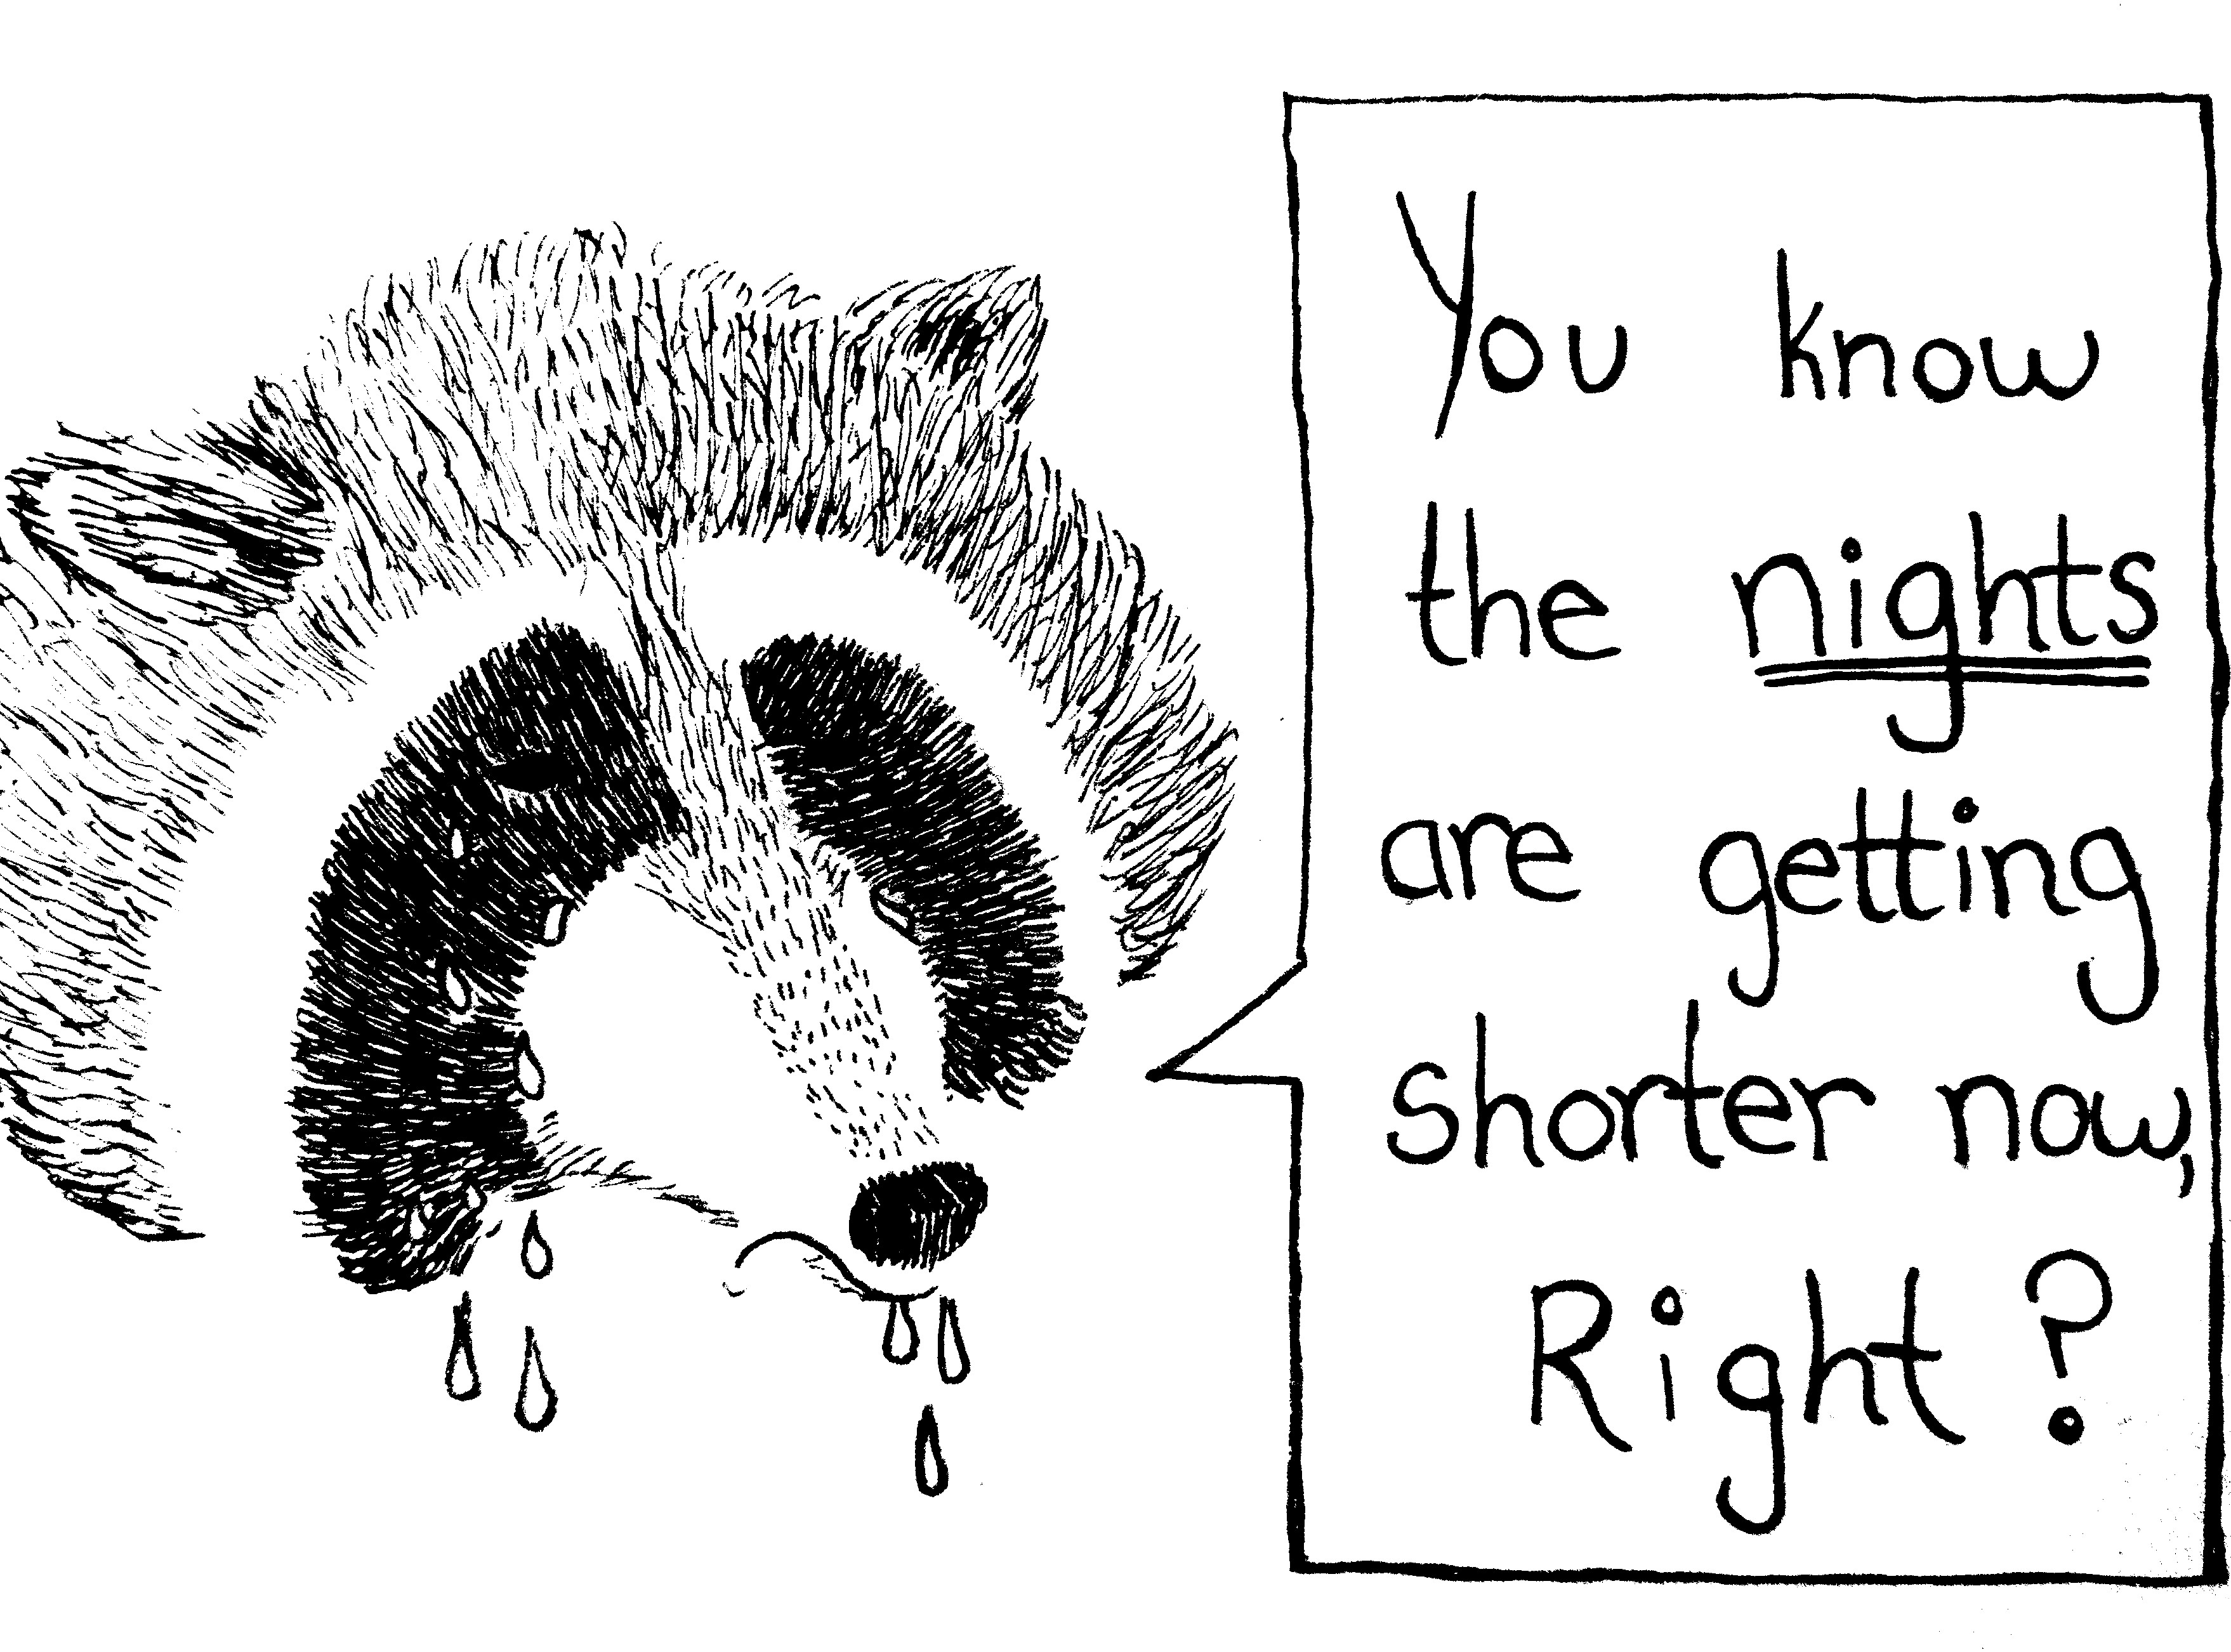 You know
the nights
are getting
shorter now,
Right?